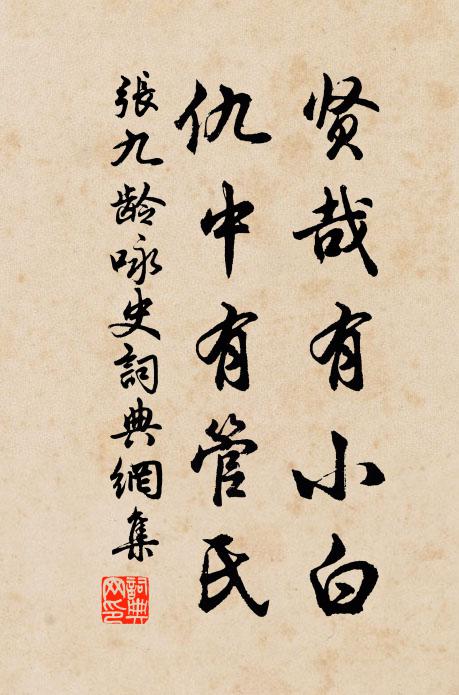 贤哉有小白
仇中有管氏
張九龄咏史詞典網集
詞典网印